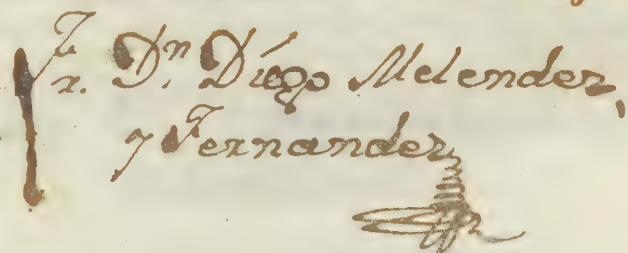 Fr. Dn. Diego Melendez,
y Fernandez